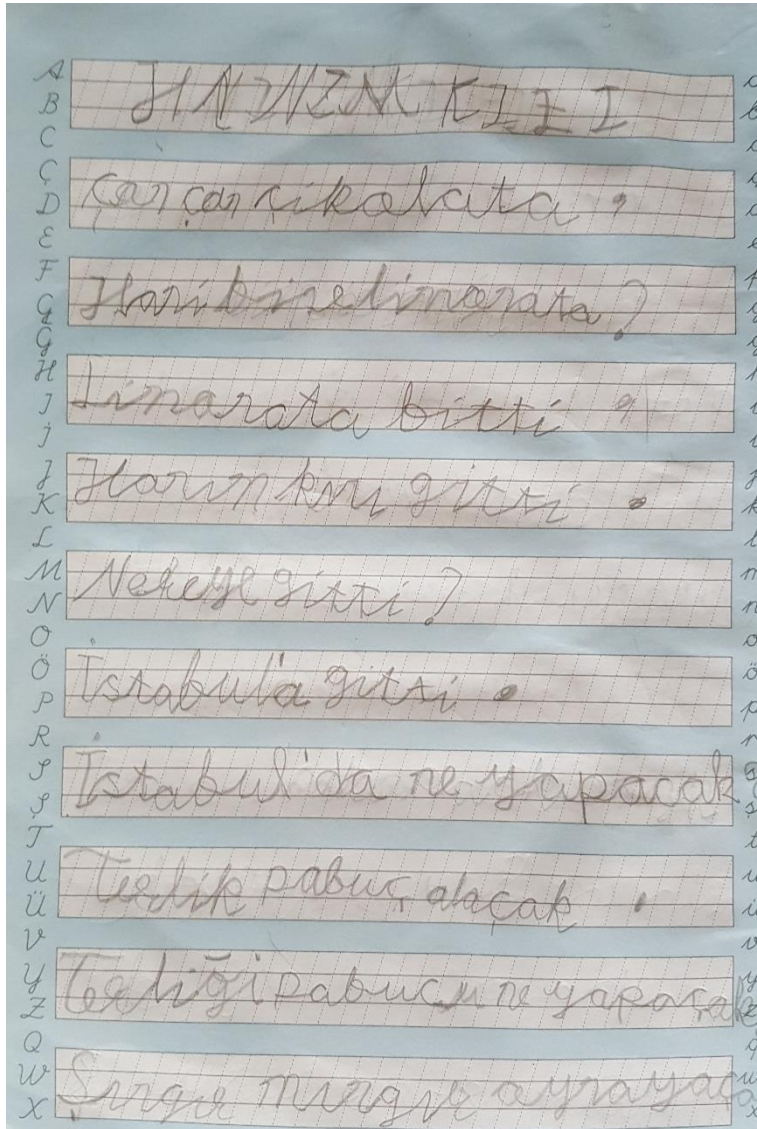 HANIZM KIZI
Çar çar çikolata ,
Hani bize limonata?
Limonata bitti ,
Hanım kızı gitti .
Nereye gitti?
İstabul'a gitti .
İstabul'da ne yapaçak
Terlik pabuç alaçak .
Terliği pabucu ne yapaçak
Şıngır mıngır oynayaça
A
B
C
Ç
D
E
F
G
Ğ
H
I
İ
J
K
L
M
N
O
Ö
P
R
S
Ş
T
U
Ü
V
Y
Z
Q
W
X